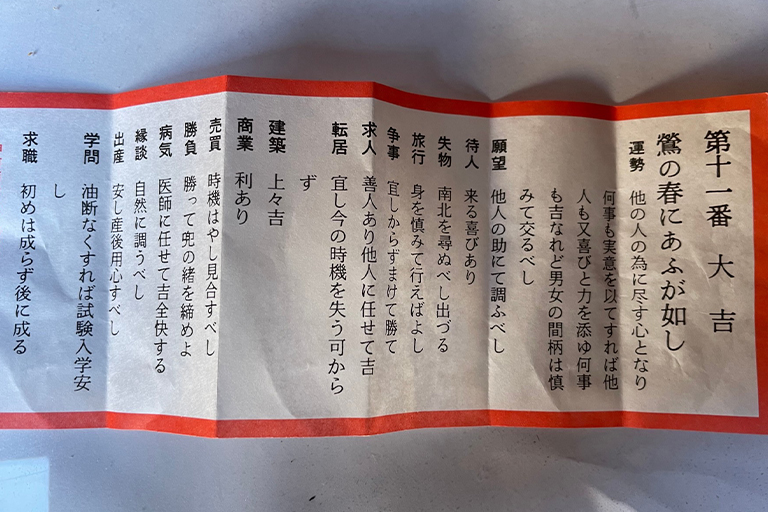 第十一番 大吉
鶯の春にあふが如し
運勢 他の人の為に尽す心となり
何事も実意を以てすれば他
人も又喜びと力を添ゆ何事
も吉なれど男女の間柄は慎
みて交るべし
願望 他人の助にて調ふべし
待人 来る喜びあり
失物 南北を尋ぬべし出づる
旅行 身を慎みて行えばよし
争事 宜しからずまけて勝て
求人 善人あり他人に任せて吉
転居 宜し今の時機を失う可から
ず
建築 上々吉
商業 利あり
売買 時機はやし見合すべし
勝負 勝って兜の緒を締めよ
病気 医師に任せて吉全快する
縁談 自然に調うべし
出産 安し産後用心すべし
学問 油断なくすれば試験入学安
し
求職 初めは成らず後に成る